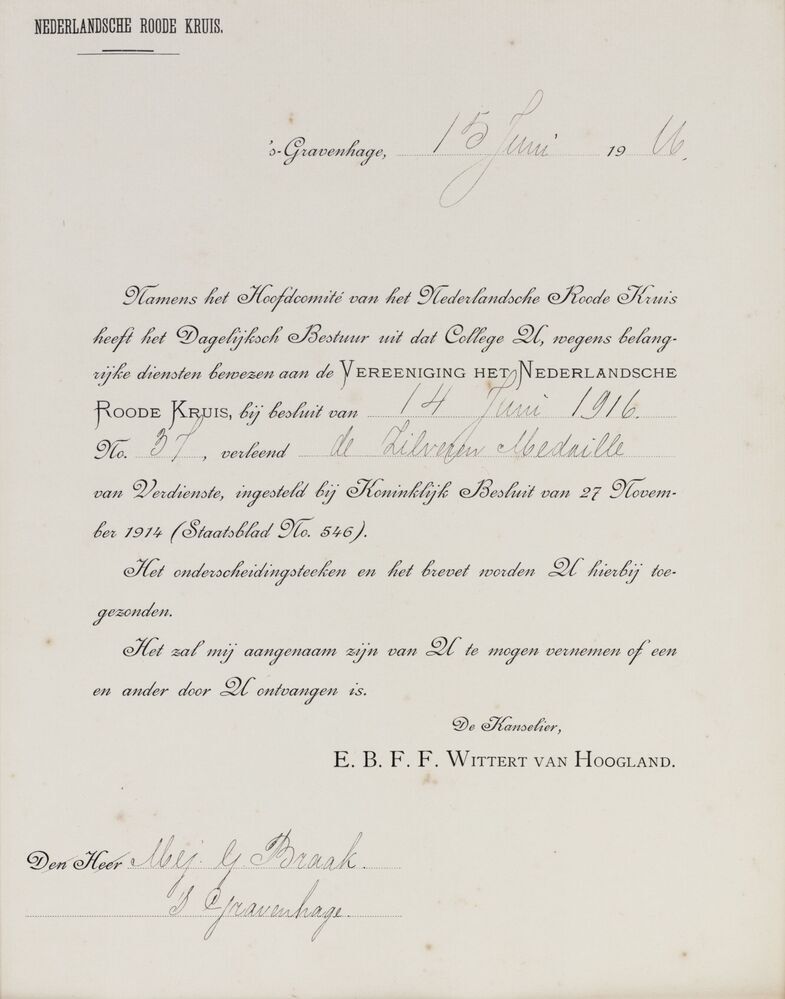 NEDERLANDSCHE ROODE KRUIS.
's-Gravenhage, 15 Juni 1916.
Namens het Hoofdcomité van het Nederlandsche Roode Kruis
heeft het Dagelijksch Bestuur uit dat College U, wegens belang-
rijke diensten bewezen aan de VEREENIGING HET NEDERLANDSCHE
ROODE KRUIS, bij besluit van 14 Juni 1916.
No. 37, verleend de Zilveren Medaille
van Verdienste, ingesteld bij Koninklijk Besluit van 27 Novem-
ber 1914 (Staatsblad No. 546).
Het onderscheidingsteeken en het brevet worden U hierbij toe-
gezonden.
Het zal mij aangenaam zijn van U te mogen vernemen of een
en ander door U ontvangen is.
De Kanselier,
E. B. F. F. WITTERT VAN HOOGLAND.
Den Heer Mej. G. Braak.
's Gravenhage.